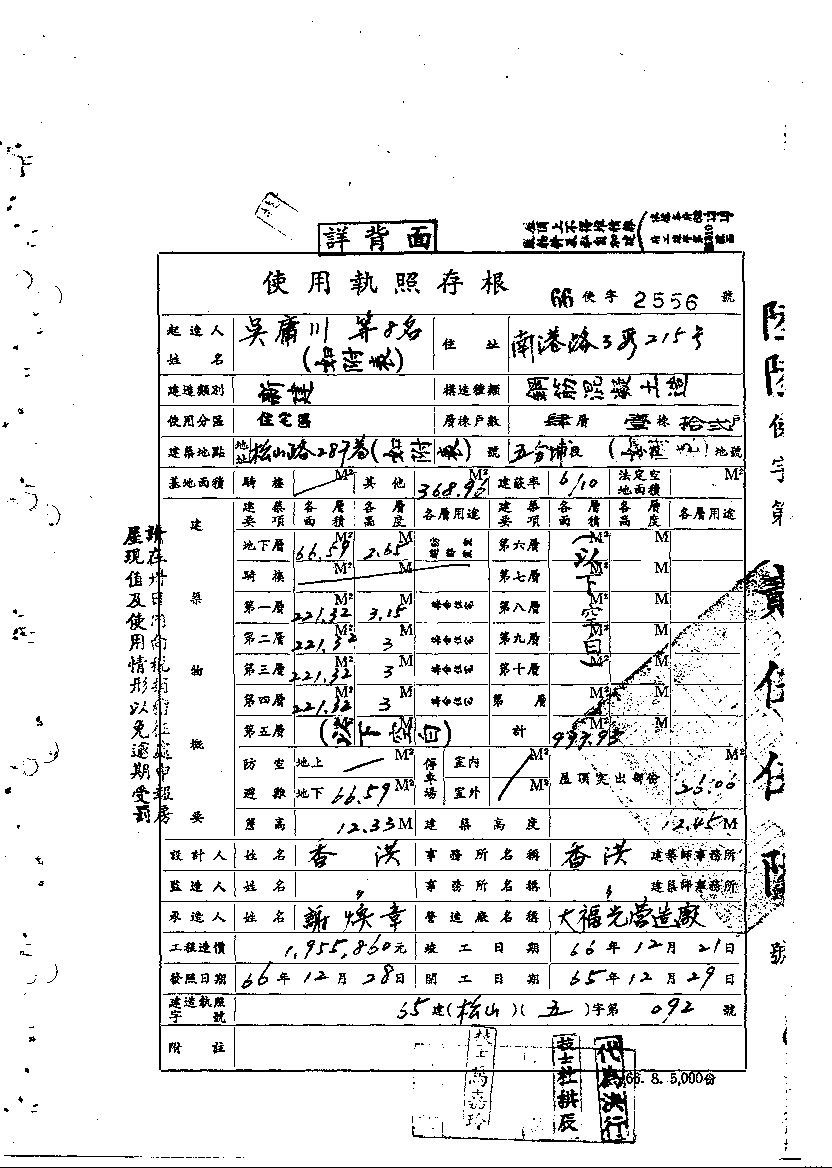 詳背面
使用執照存根
66 使字 2556 號
起造人姓名 吳庸川等8名(如附表) 住址 南港路3段215号
建造類別 新建 構造種類 鋼筋混凝土造
使用分區 住宅區 層棟戶數 肆層 壹棟 拾貳戶
建築地點 地址 松山路287巷(如附表)號 五分埔段 地號
基地面積 騎樓 M² 其他 368.96 M² 建蔽率 6/10 法定空地面積 M²
建築物概要
建築要項 各層面積 各層高度 各層用途 建築要項 各層面積 各層高度 各層用途
地下層 66.59 M² 2.65 M 第六層 M² M
騎樓 M² M 第七層 M² M
第一層 221.32 M² 3.15 M 第八層 M² M
第二層 221.32 M² 3 M 第九層 M² M
第三層 221.32 M² 3 M 第十層 M² M
第四層 221.32 M² 3 M 第 層 M² M
第五層 M² M (以下空白) 計
(以下空白)
防空避難 地上 M² 停車場 室內 M² 屋頂突出部份 26.06
地下 66.59 M² 室外 M²
簷高 12.33 M 建築高度 12.45 M
設計人 姓名 香洪 事務所名稱 香洪 建築師事務所
監造人 姓名 〃 事務所名稱 〃 建築師事務所
承造人 姓名 謝煥章 營造廠名稱 大福光營造廠
工程造價 1,955,860元 竣工日期 66年12月21日
發照日期 66年12月28日 開工日期 65年12月29日
建造執照字號 65建(松山)(五)字第 092 號
附註
66. 8. 5,000份
技士
代為決行
陸陸使字第貳伍伍陸號